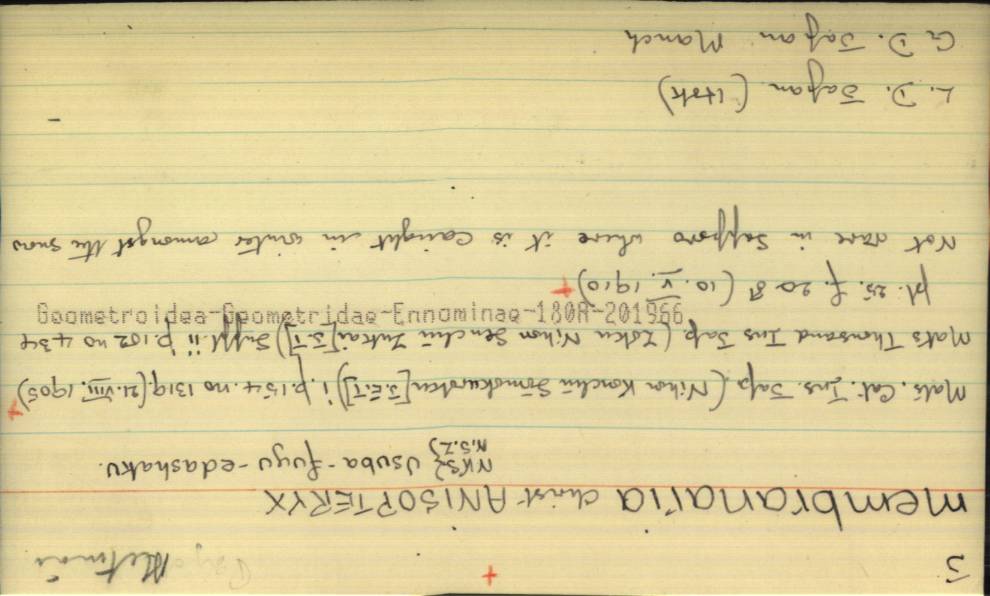 J
membranaria christ ANISOPTERYX
NKSZ} Usuba-fuyu-edashaku.
N.S.Z}
Mats. Cat. Ins. Jap. (Nihon Konchū Sōmokuroken [J.E.T]) i, p. 154. no 1319. (21. VIII. 1905) +
Mats Thousand Ins Jap (Zoku Nihon Senchū Zukai [J.T]) Suppl. ii p. 102 no 434
Geometroidea-Geometridae-Ennominae-180A-201966
pl. 25. f. 20 ♂ (10. V. 1910) +
Not rare in Sapporo where it is caught in winter amongst the snow
L. D. Japan (Hok)
G. D. Japan Manch